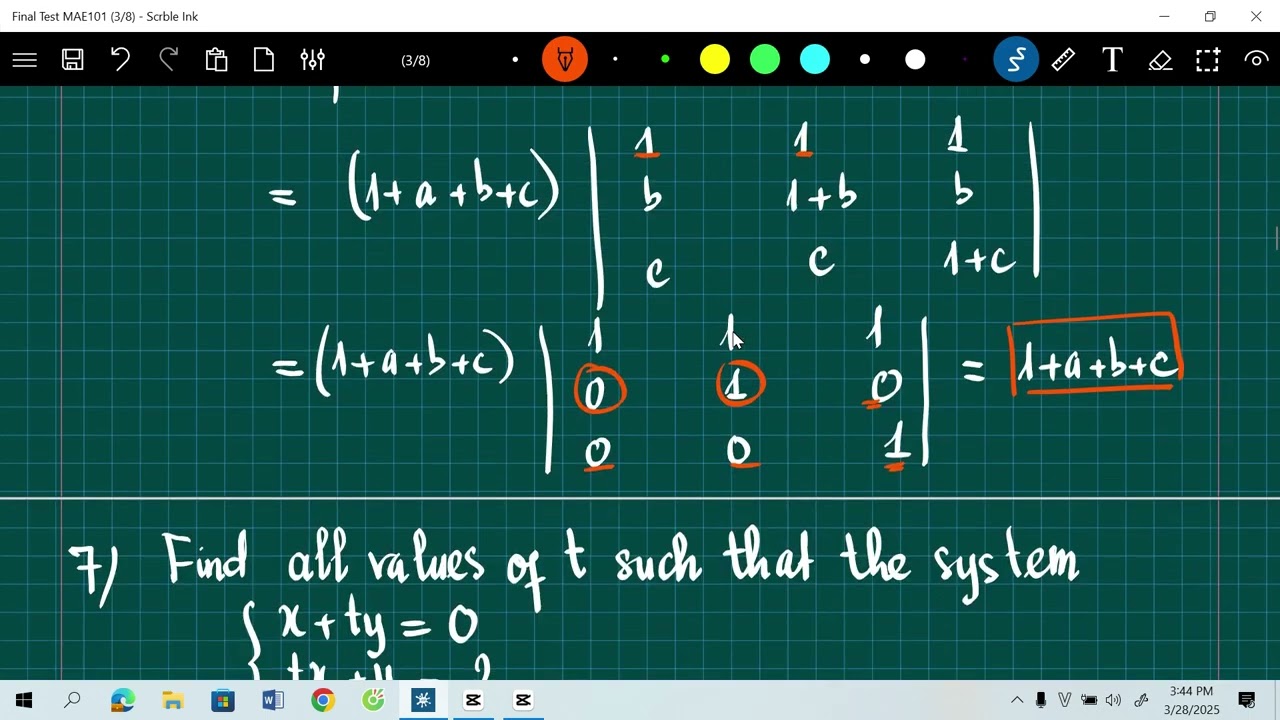 Final Test MAE101 (3/8) - Scrble Ink
(3/8)
T
1 1 1
= (1+a+b+c) b 1+b b
c c 1+c
1 1 1
= (1+a+b+c) 0 1 0 = 1+a+b+c
0 0 1
7) Find all values of t such that the system
{ x + ty = 0
3:44 PM
3/28/2025